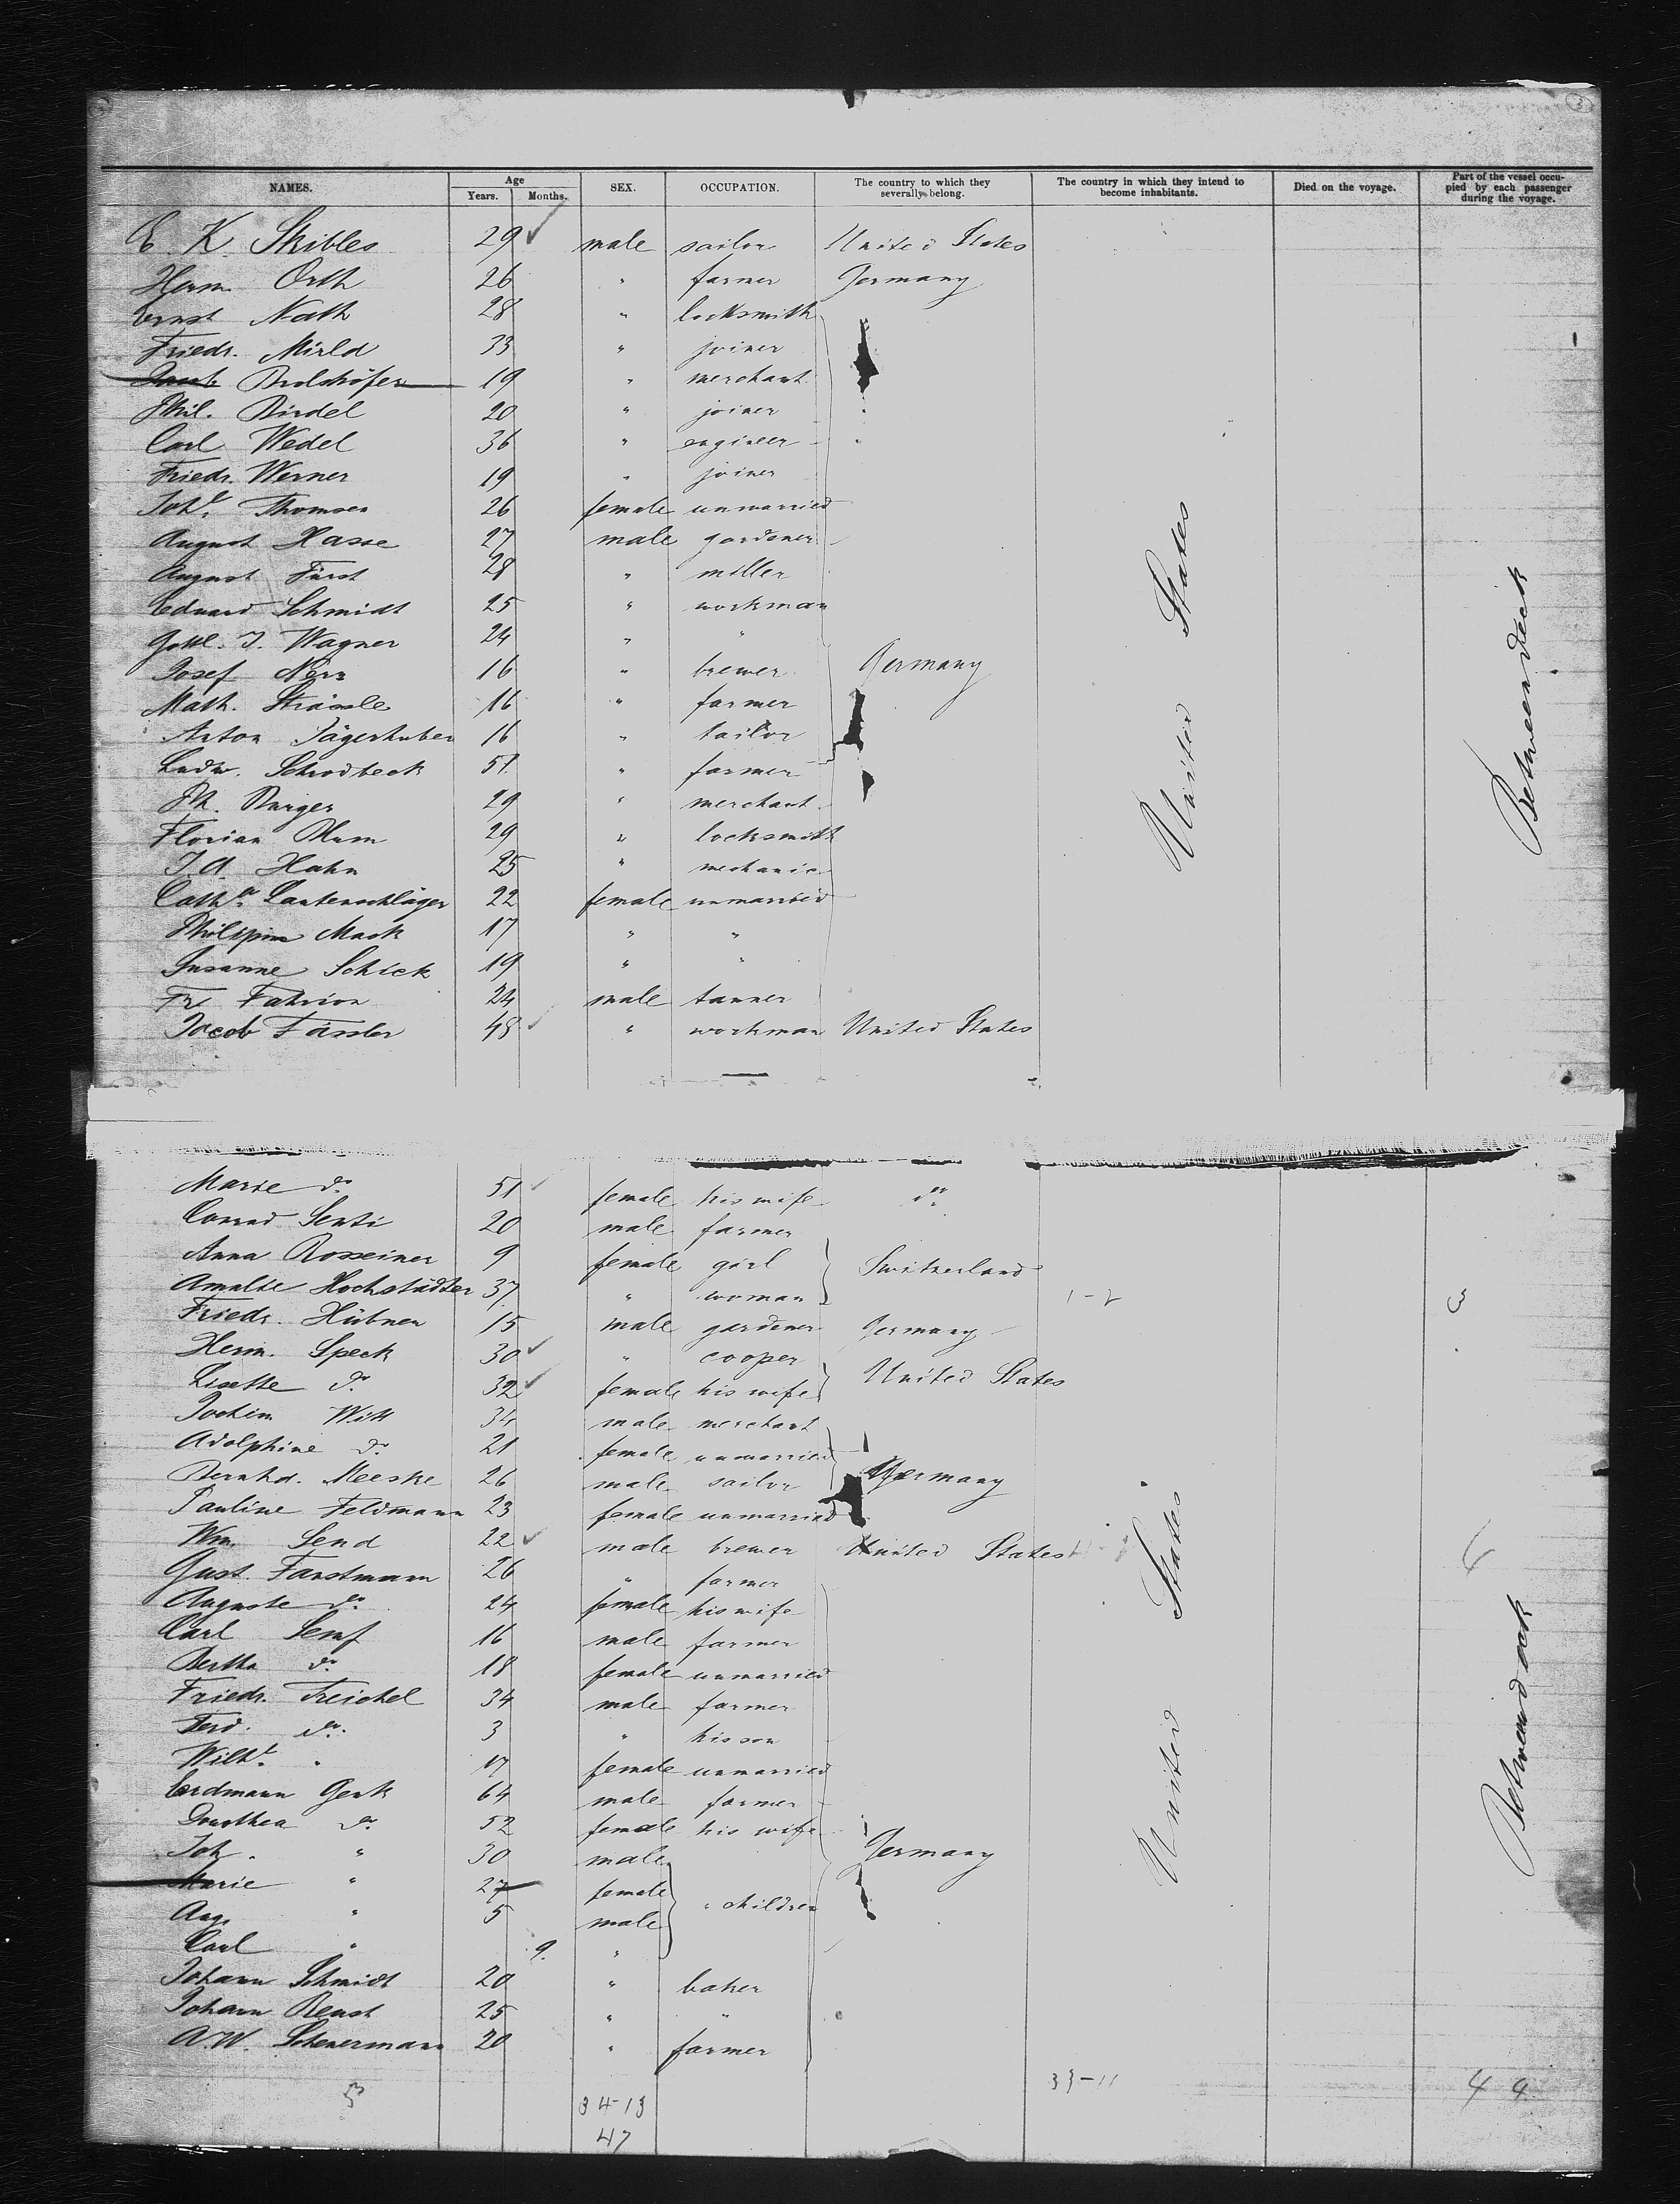 NAMES. Age Years. Months. SEX. OCCUPATION. The country to which they severally belong. The country in which they intend to become inhabitants. Died on the voyage. Part of the vessel occupied by each passenger during the voyage.
E. K. Skibles 29 male sailor United States
Herm. Orth 26 " farmer Germany
Ernst Nath 28 " locksmith
Friedr. Mirld 33 " joiner
19 " merchant
Phil. Birdel 20 " joiner
Carl Wedel 36 " engineer
Friedr. Werner 19 " joiner
Joh.e Thomsen 26 female unmarried
August Hasse 27 male gardener
August Fürst 28 " miller
Eduard Schmidt 25 " workman
Gottl. J. Wagner 24 " "
Josef Nerz 16 " brewer Germany
Math. Strässle 16 " farmer
Anton Jägerhuber 16 " tailor
Ludw. Schrodbeck 51 " farmer
Ph. Burger 29 " merchant
Florian Blum 29 " locksmith
J. A. Hahn 25 " mechanic
Cath.a Lautenschläger 22 female unmarried
Philippine Mack 17 " "
Susanne Schick 19 " "
Fr. Fahrion 24 male tanner
Jacob Fässler 48 " workman United States
United States
Betweendeck
Marie do 51 female his wife do
Conrad Senti 20 male farmer
Anna Rosseiner 9 female girl Switzerland
Amalie Hochstädter 37 " woman
Friedr. Hübner 15 male gardener Germany
Herm. Speck 30 " cooper United States
Lisette do 32 female his wife
Jochim Witt 34 male merchant
Adolphine do 21 female unmarried
Bernhd. Meeske 26 male sailor Germany
Pauline Feldmann 23 female unmarried
Wm. Send 22 male brewer United States
Gust. Fanstmann 26 " farmer
Auguste do 24 female his wife
Carl Senf 16 male farmer
Bertha do 18 female unmarried
Friedr. Treichel 34 male farmer
Ferd. do 3 " his son
Wilh.e " 17 female unmarried
Erdmann Genk 64 male farmer
Dorothea do 52 female his wife
Joh. " 30 male Germany
Marie " 27 female children
Aug. " 5 male
Carl " 9 "
Johann Schmidt 20 " baker
Johann Renst 25 " "
A. W. Scheuermann 20 " farmer
United States
Betweendeck
33-11
44
34-13
47